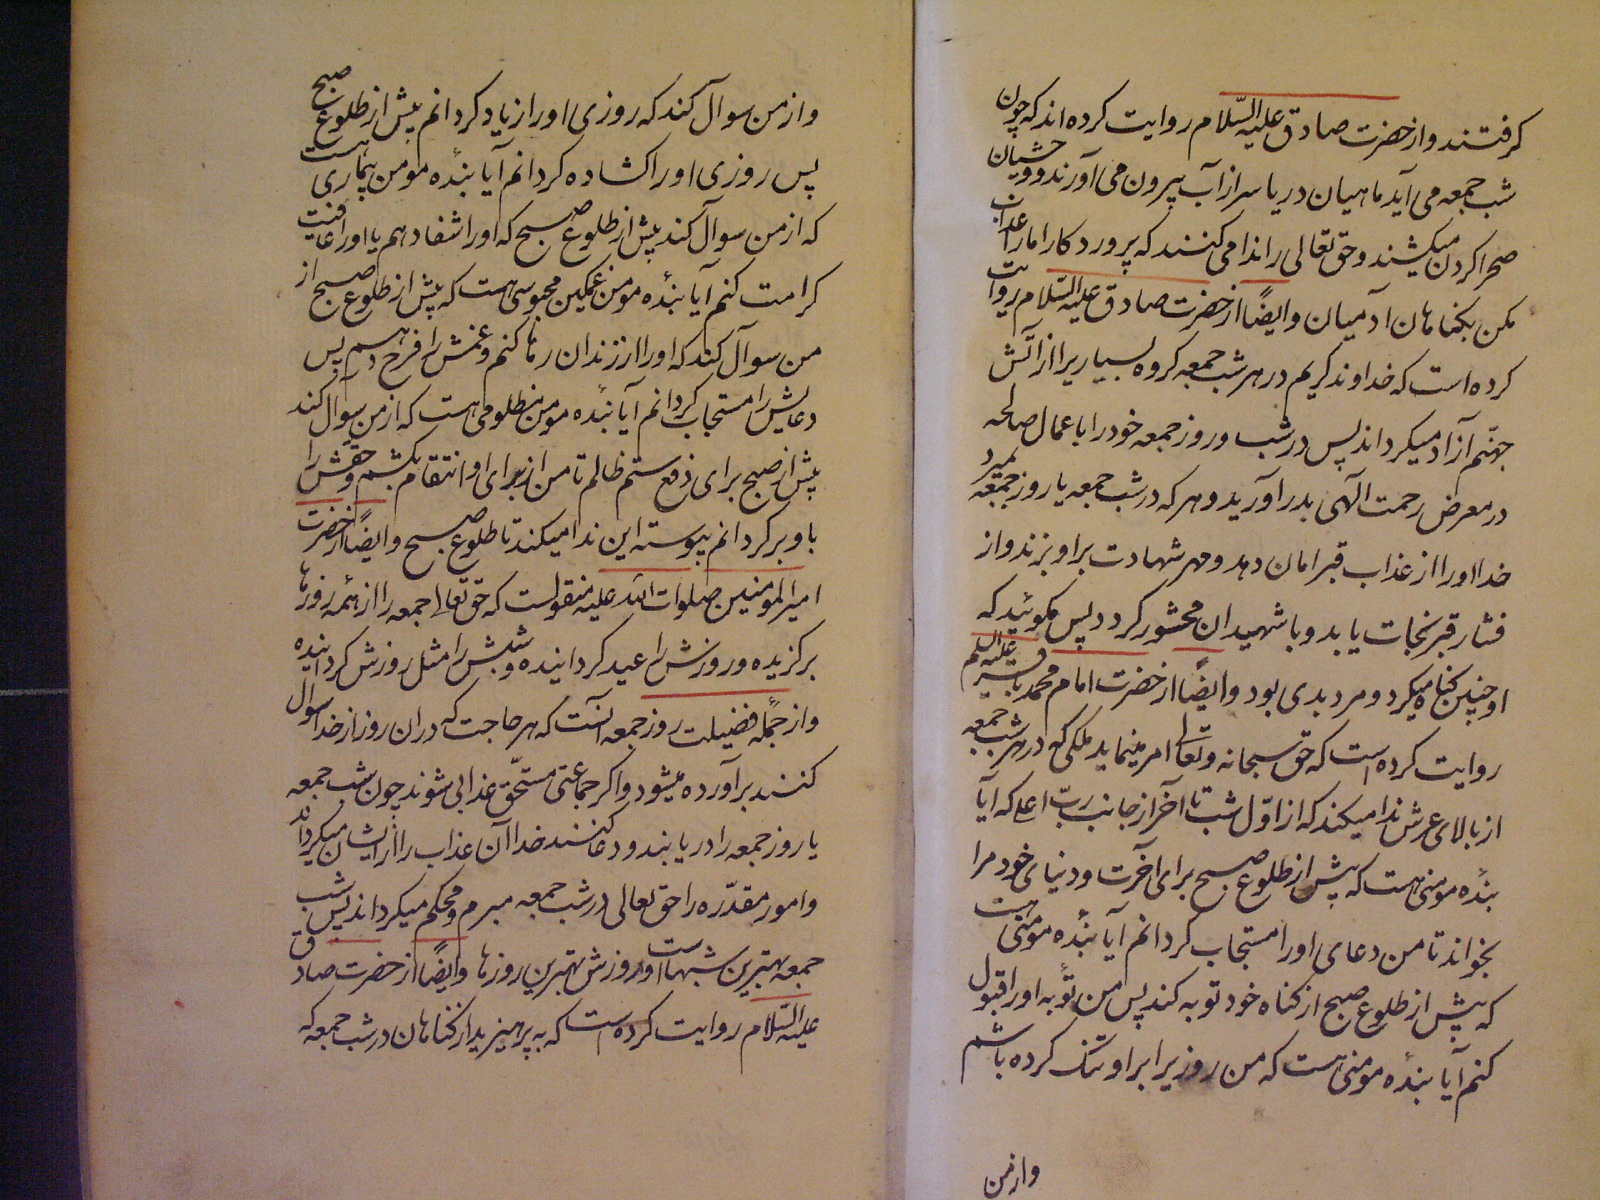 کرفتند و از حضرت صادق علیه السّلام روایت کرده اند که چون
شب جمعه می آید ماهیان دریا سر از آب بیرون می آورند و وحشیان
صحرا کردن میکشند و حق تعالی را ندا می کنند که پروردکارا ما را عذاب
مکن بکناهان آدمیان و ایضًا از حضرت صادق علیه السّلام روایت
کرده است که خداوند کریم در هر شب جمعه کروه بسیاریرا از آتش
جهنّم آزاد میکرداند پس در شب و روز جمعه خود را با عمال صالحه
در معرض رحمت الهی بدر آورید و هر که در شب جمعه یا روز جمعه بمیرد
خدا او را از عذاب قبر امان دهد و مهر شهادت بر او بزند و از
فشار قبر نجات یابد و با شهیدان محشور کردد پس مکوئید که
او چنین کناه میکرد و مرد بدی بود و ایضًا از حضرت امام محمد باقر علیه السلم
روایت کرده است که حق سبحانه و تعالی امر مینماید ملکی که در هر شب جمعه
از بالای عرش ندا میکند که از اوّل شب تا آخر از جانب ربّ اعلی که آیا
بنده مومنی هست که پیش از طلوع صبح برای آخرت و دنیای خود مرا
بخواند تا من دعای او را مستجاب کردانم آیا بندهٔ مومنی هست
که پیش از طلوع صبح از کناه خود توبه کند پس من توبهٔ او را قبول
کنم آیا بندهٔ مومنی هست که من روزیرا بر او تنک کرده باشم
و از من
و از من سوال کند که روزی او را زیاد کردانم پیش از طلوع صبح
پس روزی او را کشاده کردانم آیا بندهٔ مومن بیماری هست
که از من سوآل کند پیش از طلوع صبح که او را شفا دهم یا او را عافیت
کرامت کنم آیا بندهٔ مومن غمکین محبوسی هست که پیش از طلوع صبح از
من سوآل کند که او را از زندان رها کنم و غمش را فرج دهم پس
دعایش را مستجاب کردانم آیا بندهٔ مومن مظلومی هست که از من سوآل کند
پیش از صبح برای دفع ستم ظالم تا من از برای او انتقام بکشم و حقش را
باو بر کردانم پیوسته این ندا میکند تا طلوع صبح و ایضًا از حضرت
امیر المومنین صلوات الله علیه منقولست که حق تعالی جمعه را از همهٔ روزها
برکزیده و روزش را عید کردانیده و شبش را مثل روزش کردانیده
و از جملهٔ فضیلت روز جمعه آنست که هر حاجت که در ان روز از خدا سوال
کنند برآورده میشود و اکر جماعتی مستحّق عذابی شوند چون شب جمعه
یا روز جمعه را دریابند و دعا کنند خدا آن عذاب را از ایشان میکرداند
و امور مقدّره را حق تعالی در شب جمعه مبرم و محکم میکرداند پس شب
جمعه بهترین شبهاست و روزش بهترین روزها و ایضًا از حضرت صادق
علیه السّلام روایت کرده است که به پرهیزید از کناهان در شب جمعه که